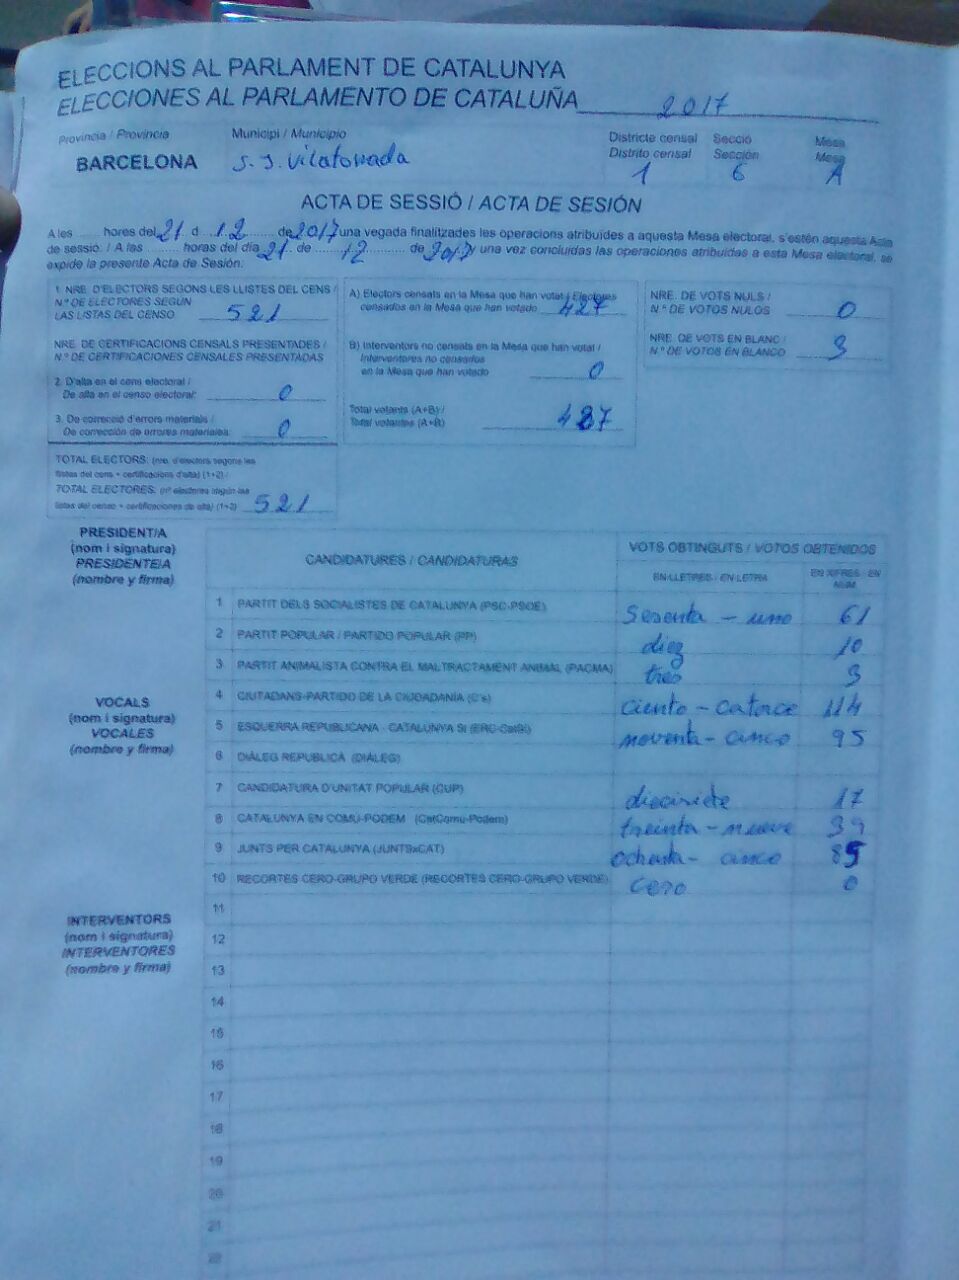 ELECCIONS AL PARLAMENT DE CATALUNYA
ELECCIONES AL PARLAMENTO DE CATALUÑA 2017
Província / Provincia Municipi / Municipio Districte censal Secció Mesa
Distrito censal Sección Mesa
BARCELONA S. J. Vilatorrada 1 6 A
ACTA DE SESSIÓ / ACTA DE SESIÓN
A les ..... hores del 21 d 12 de 2017 una vegada finalitzades les operacions atribuïdes a aquesta Mesa electoral, s'estén aquesta Acta
de sessió. / A las ..... horas del día 21 de 12 de 2017 y una vez concluidas las operaciones atribuidas a esta Mesa electoral, se
expide la presente Acta de Sesión:
1. NRE. D'ELECTORS SEGONS LES LLISTES DEL CENS /
N.º DE ELECTORES SEGÚN
LAS LISTAS DEL CENSO 521
NRE. DE CERTIFICACIONS CENSALS PRESENTADES /
N.º DE CERTIFICACIONES CENSALES PRESENTADAS
2. D'alta en el cens electoral /
De alta en el censo electoral: 0
3. De correcció d'errors materials /
De corrección de errores materiales: 0
TOTAL ELECTORS: (nre. d'electors segons les
llistes del cens + certificacions d'alta) (1+2) /
TOTAL ELECTORES: (nº electores según las
listas del censo + certificaciones de alta) (1+2) 521
A) Electors censats en la Mesa que han votat / Electores
censados en la Mesa que han votado 427
B) Interventors no censats en la Mesa que han votat /
Interventores no censados
en la Mesa que han votado 0
Total votants (A+B) /
Total votantes (A+B)
NRE. DE VOTS NULS /
N.º DE VOTOS NULOS 0
NRE. DE VOTS EN BLANC /
N.º DE VOTOS EN BLANCO 3
PRESIDENT/A
(nom i signatura)
PRESIDENTE/A
(nombre y firma)
VOCALS
(nom i signatura)
VOCALES
(nombre y firma)
INTERVENTORS
(nom i signatura)
INTERVENTORES
(nombre y firma)
CANDIDATURES / CANDIDATURAS VOTS OBTINGUTS / VOTOS OBTENIDOS
EN LLETRES - EN LETRA EN XIFRES - EN NUM.
1 PARTIT DELS SOCIALISTES DE CATALUNYA (PSC-PSOE) Sesenta - uno 61
2 PARTIT POPULAR / PARTIDO POPULAR (PP) diez 10
3 PARTIT ANIMALISTA CONTRA EL MALTRACTAMENT ANIMAL (PACMA) tres 3
4 CIUTADANS-PARTIDO DE LA CIUDADANÍA (C's) ciento - catorce 114
5 ESQUERRA REPUBLICANA - CATALUNYA SÍ (ERC-CatSí) noventa - cinco 95
6 DIÀLEG REPUBLICÀ (DIÀLEG)
7 CANDIDATURA D'UNITAT POPULAR (CUP) diecisiete 17
8 CATALUNYA EN COMÚ-PODEM (CatComú-Podem) treinta - nueve 39
9 JUNTS PER CATALUNYA (JUNTSxCAT) ochenta - cinco 85
10 RECORTES CERO-GRUPO VERDE (RECORTES CERO-GRUPO VERDE) cero 0
11
12
13
14
15
16
17
18
19
20
21
22